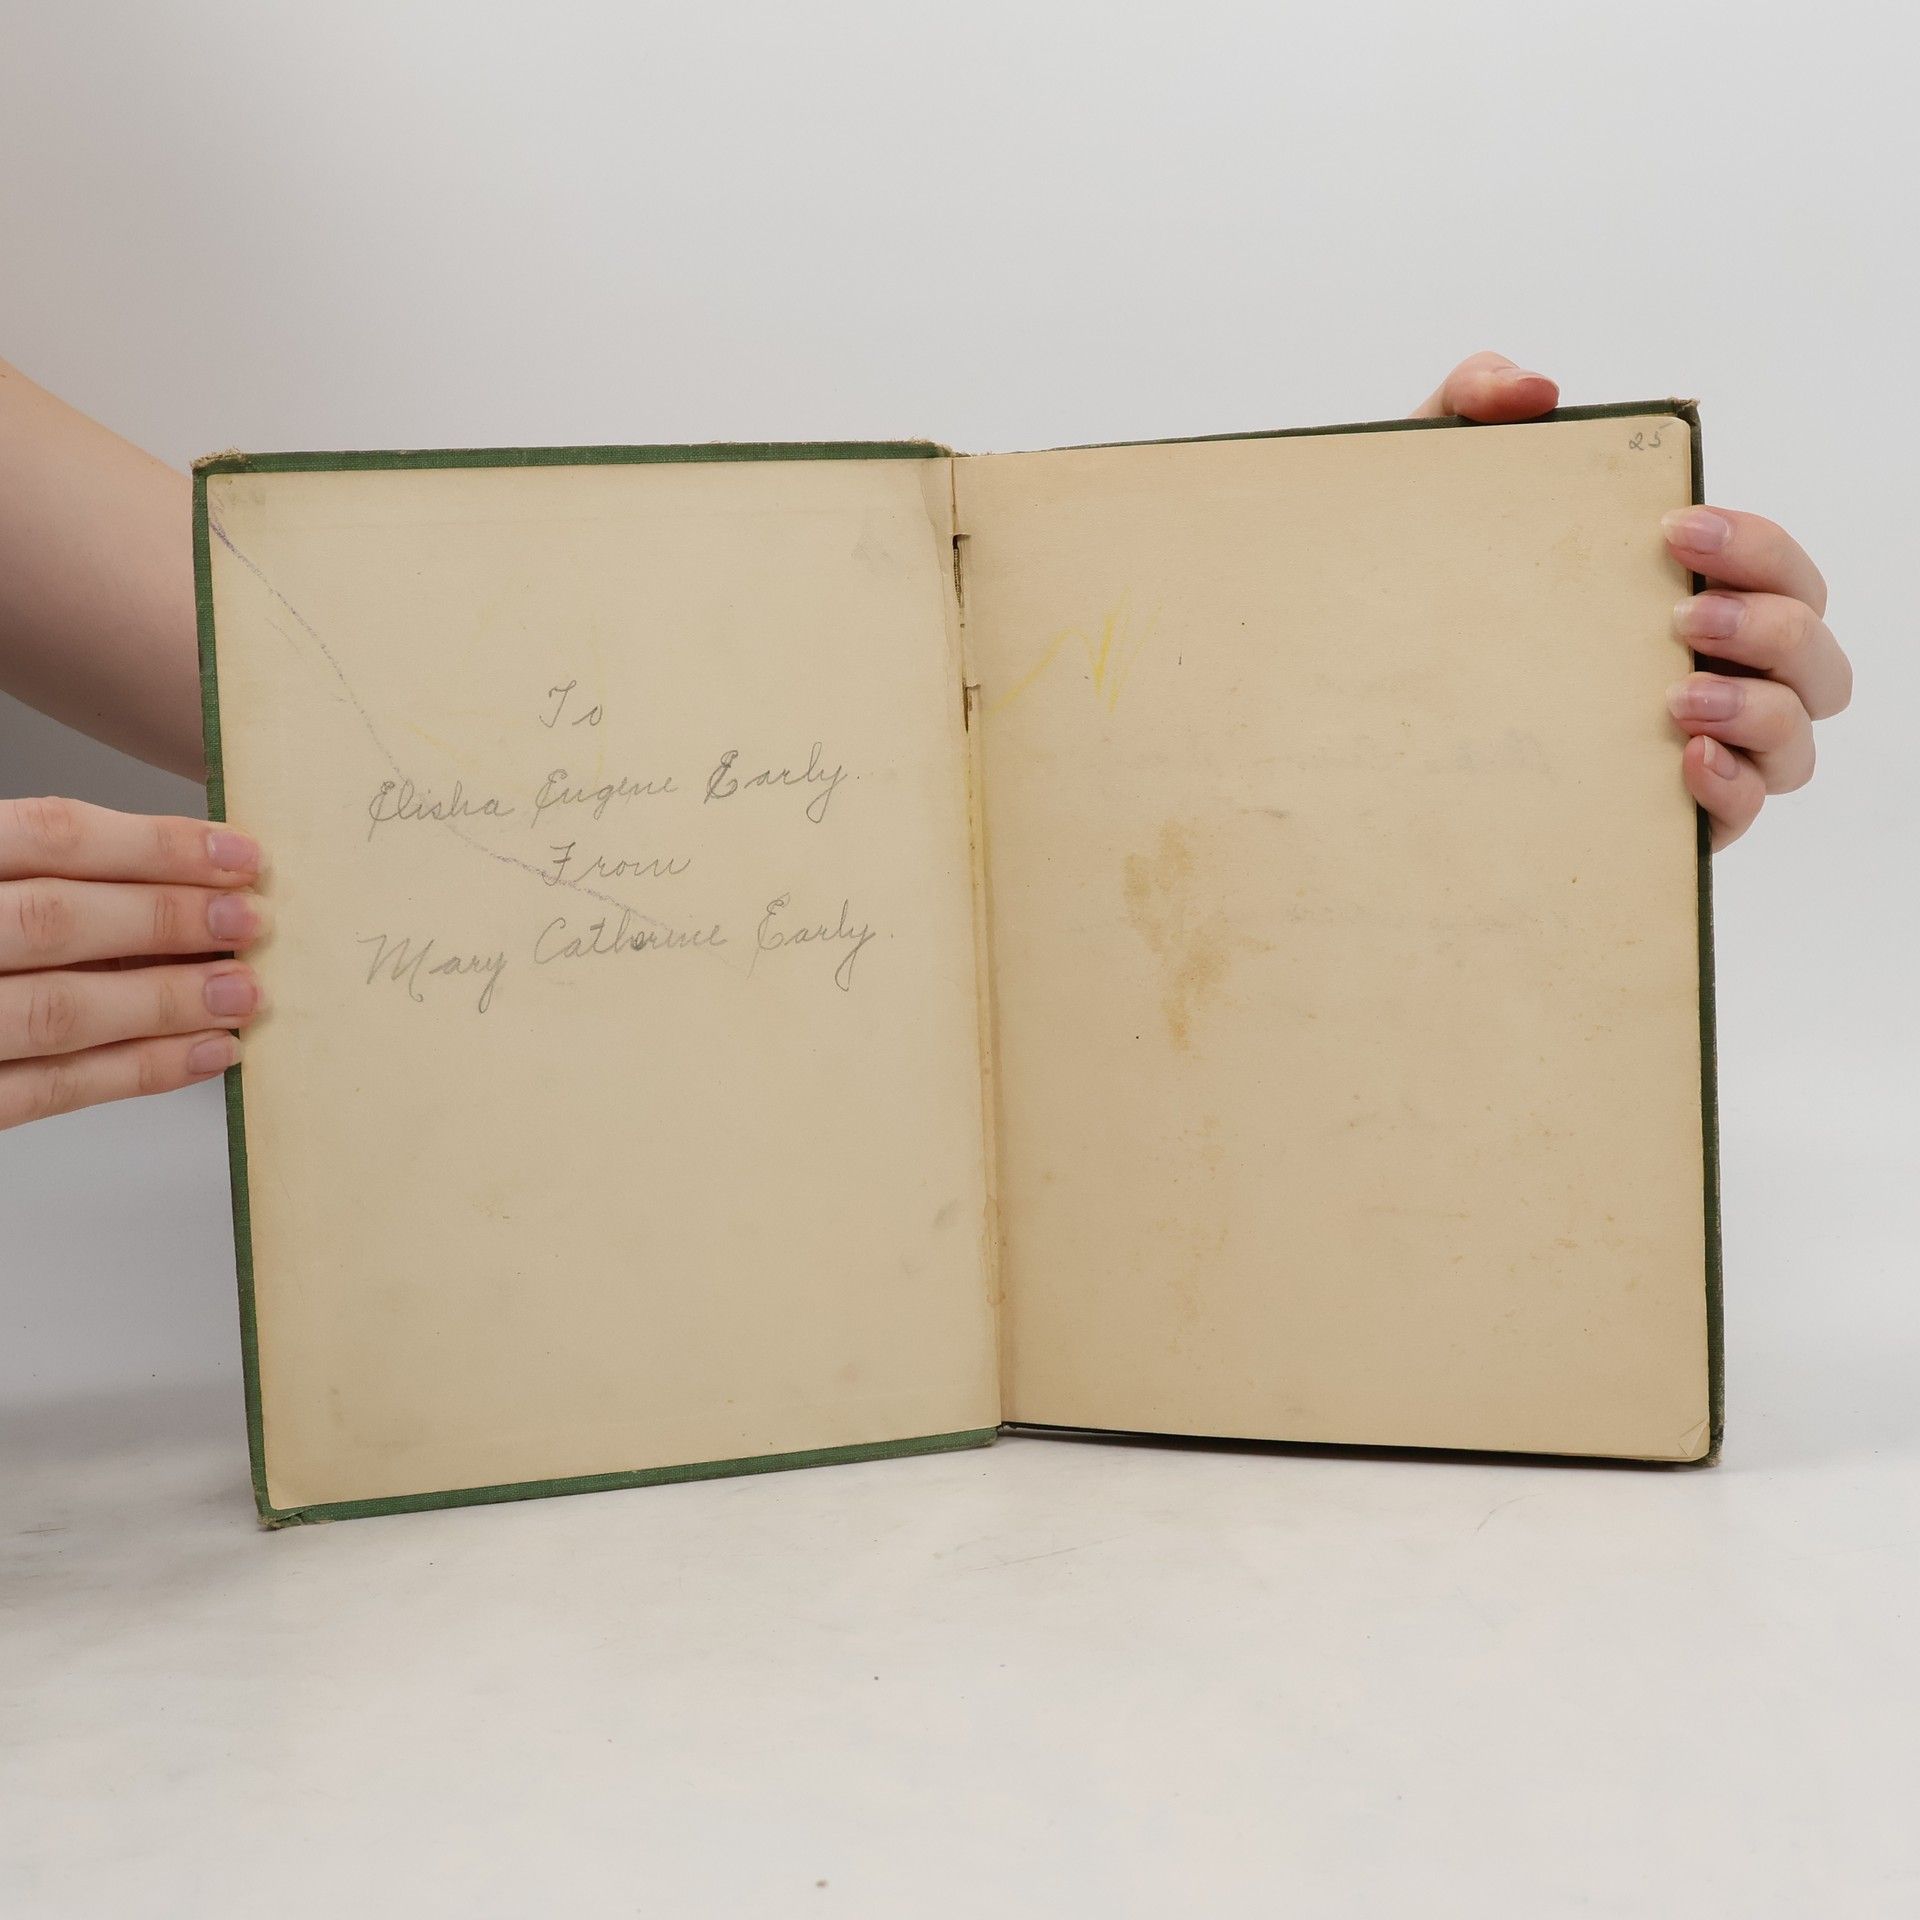 To
Elisha Eugene Early.
From
Mary Catherine Early.
25